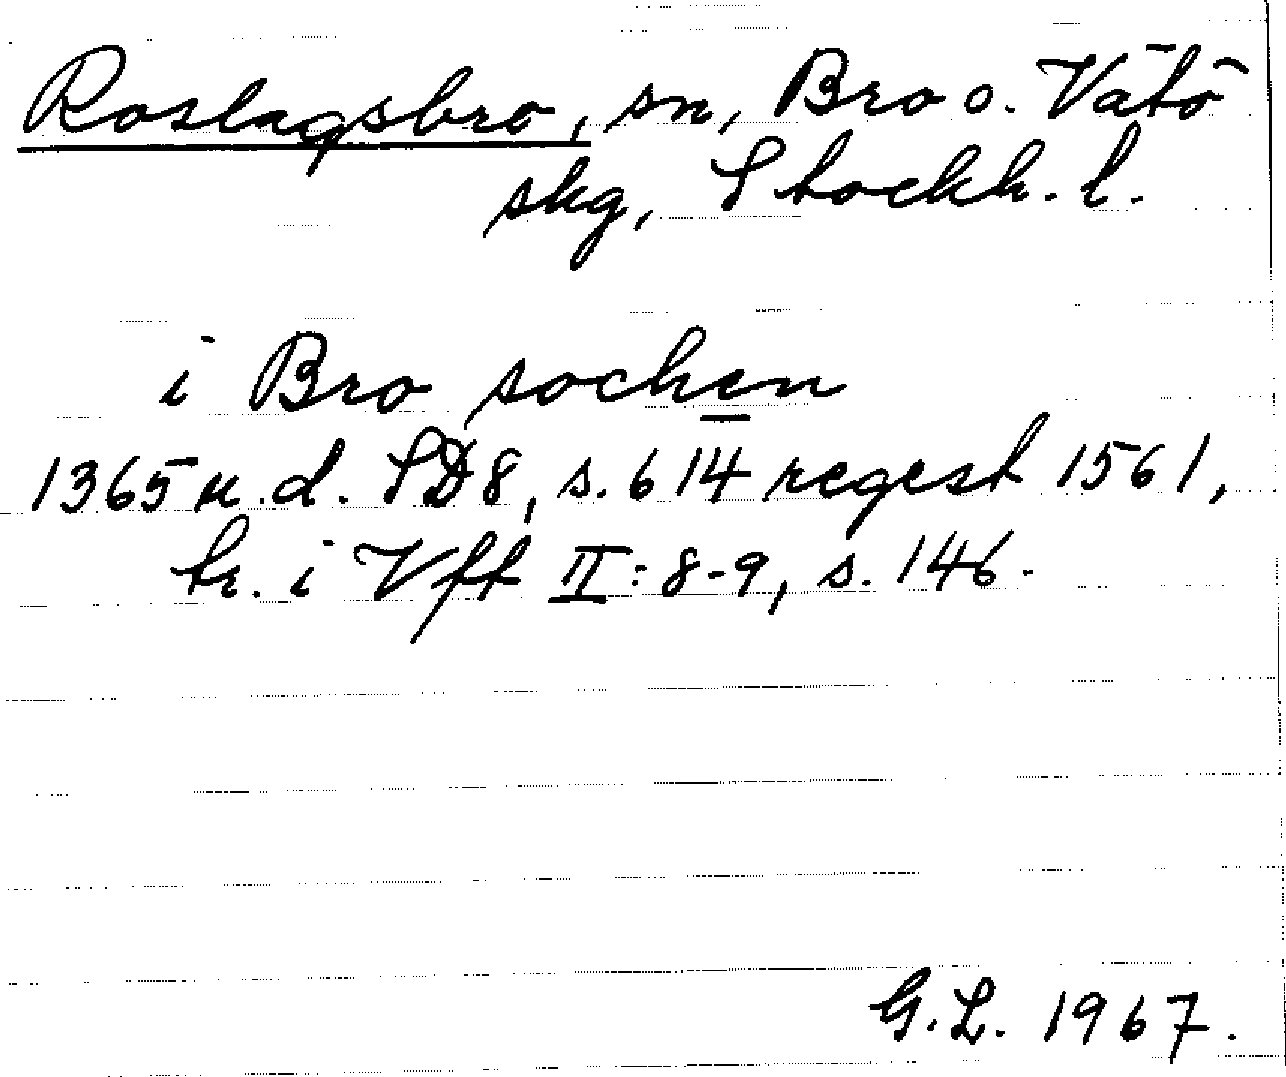 Roslagsbro, sn, Bro o. Vätö
skg, Stockh. l.
i Bro sochen
1365 u.d. SD8, s. 614 regest 1561,
tr. i Vff II: 8-9, s. 146.
G.L. 1967.